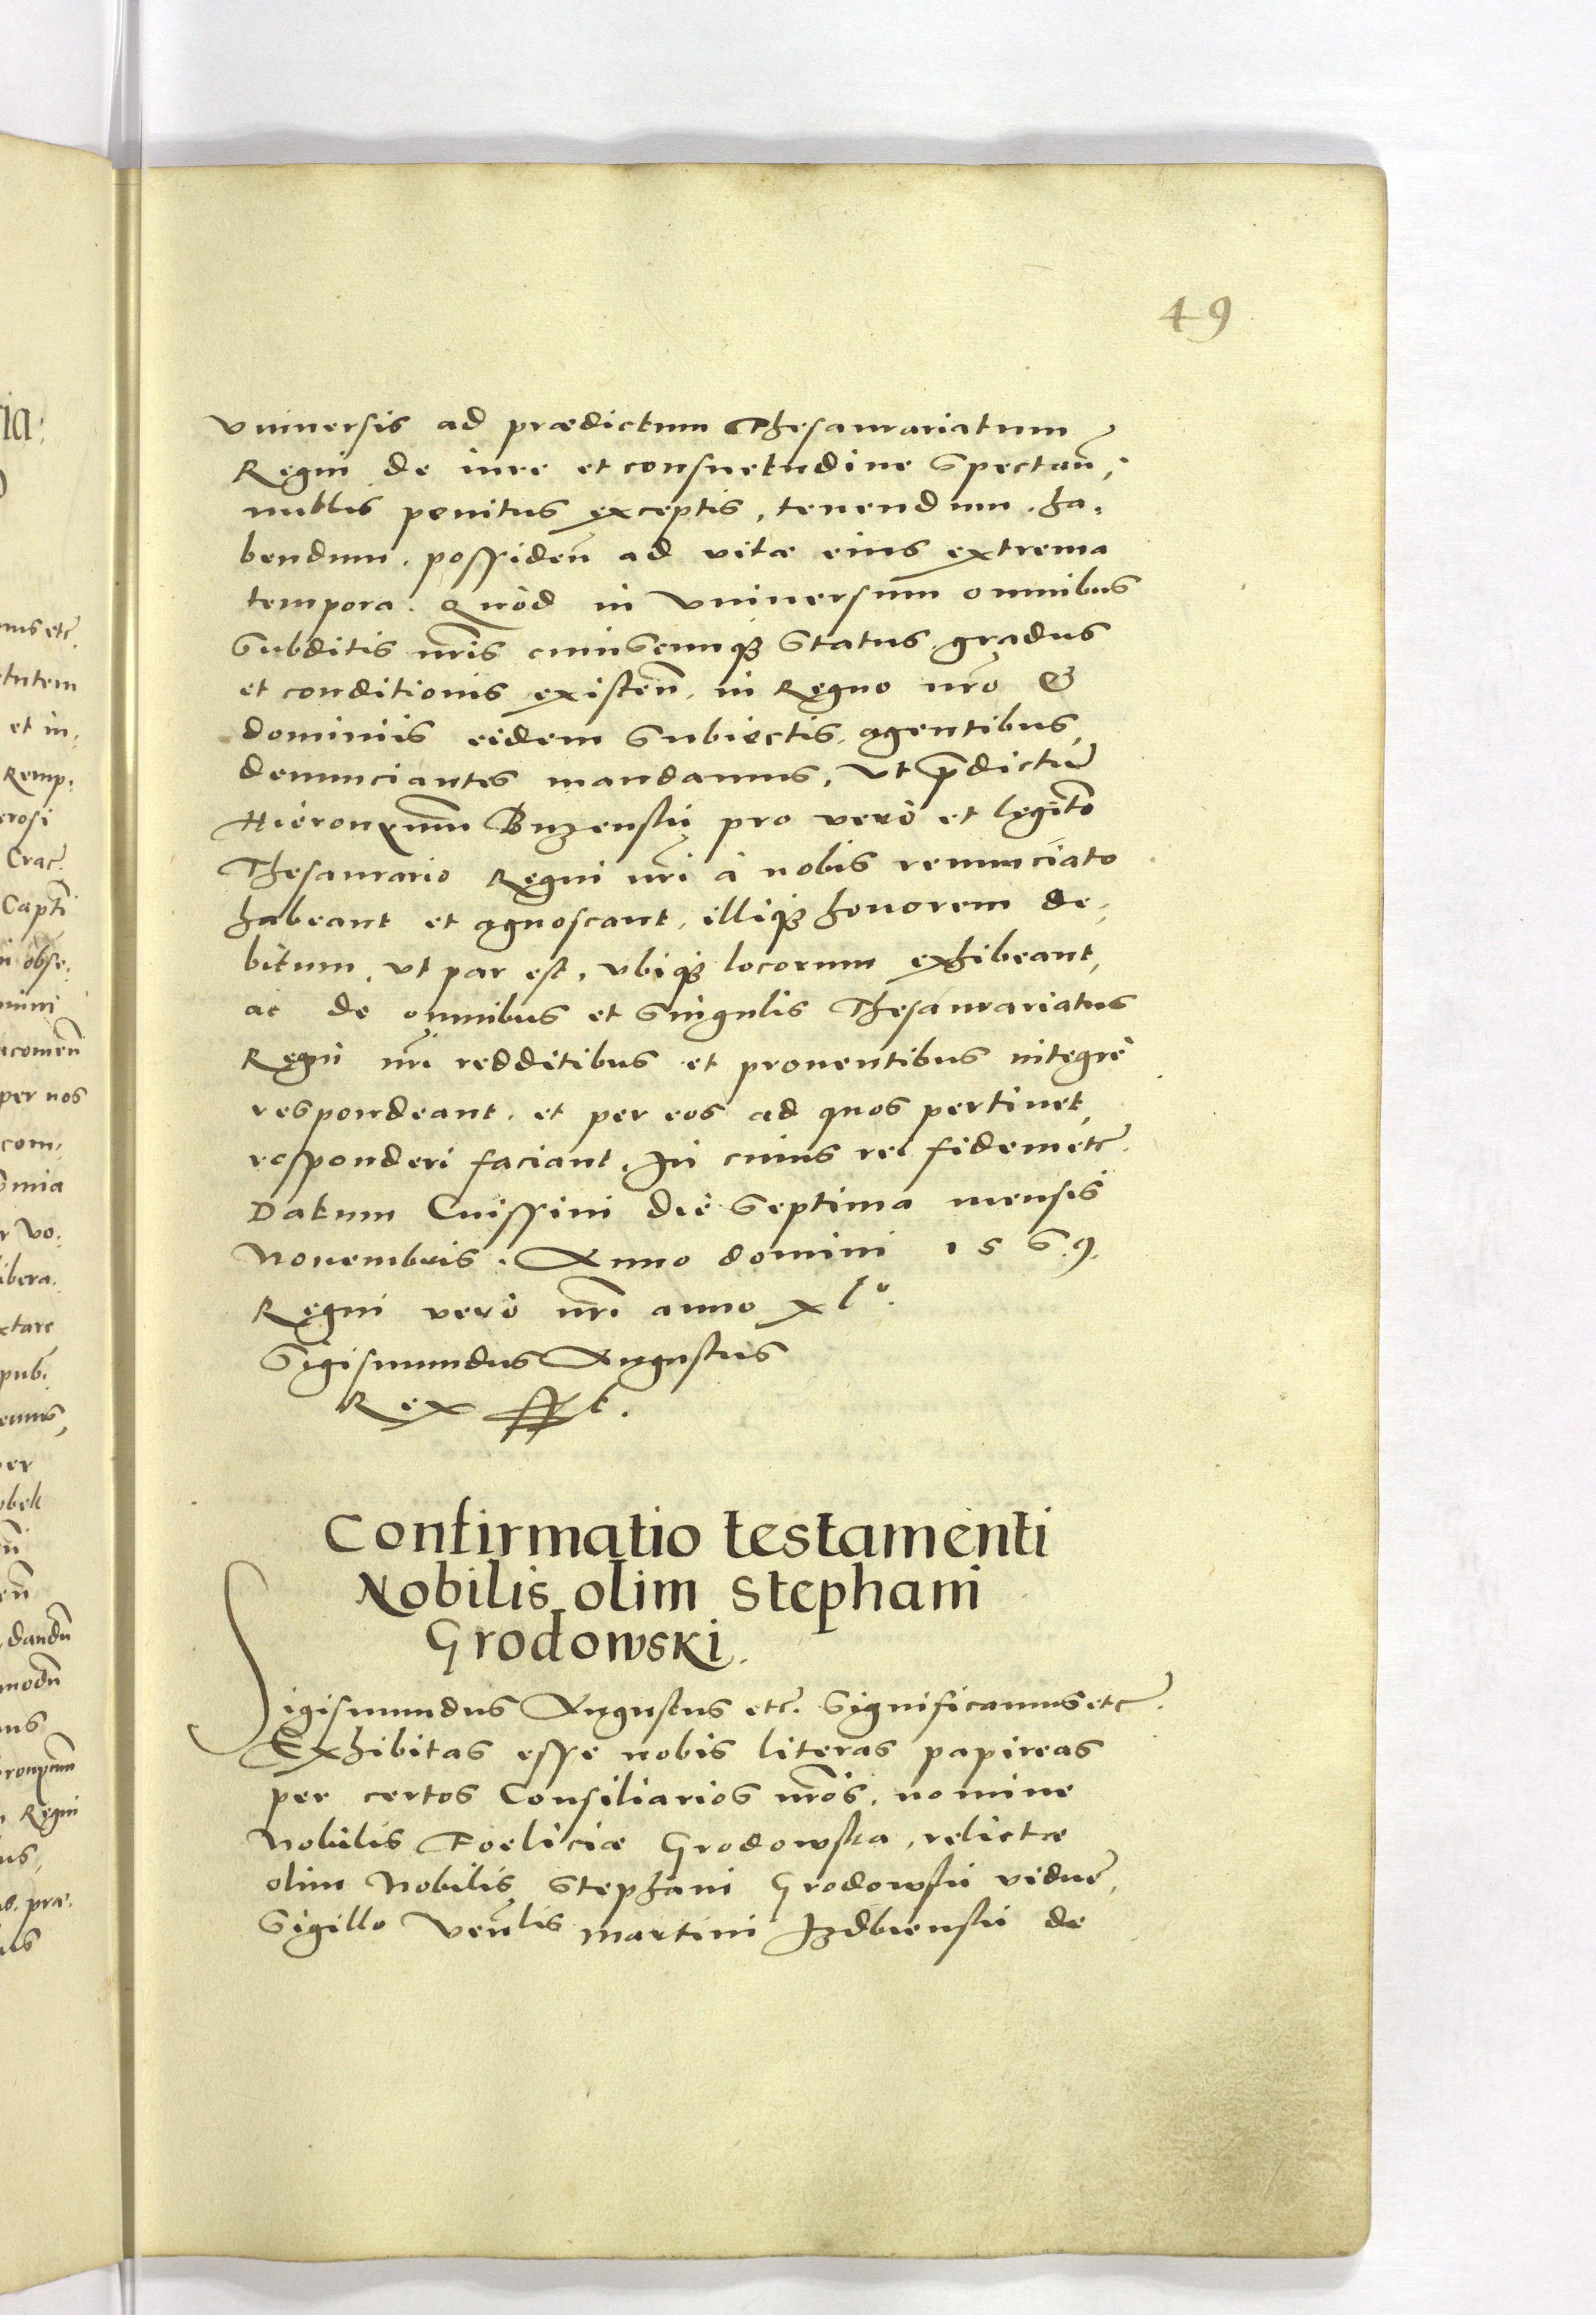 49
vniuersis ad prædictum Thesaurariatum
Regni de iure et consuetudine spectan̄,
nullis penitus exceptis, tenendum, ha,
bendum, possiden̄ ad vitæ eius extrema
tempora. Quòd in vniuersum omnibus
subditis nr̄is cuiuscunqȝ status, gradus
et conditionis existen̄, in Regno nr̄o &
dominiis eidem subiectis, agentibus,
denunciantes mandamus, vt p̄dictū
Hieronymum Buzenskii pro vero et legit̄o
Thesaurario Regni nr̄i à nobis renunciato
habeant et agnoscant, illiqȝ honorem de,
bitum, vt par est, vbiqȝ locorum exhibeant,
ac de omnibus et singulis Thesaurariatus
Regni nr̄i redditibus et prouentibus integrè
respondeant, et per eos ad quos pertinet,
responderi faciant. In cuius rei fidem etc̄.
Datum Cnissini die septima mensis
Nouembris. Anno domini 1569.
Regni verò nr̄i anno xl°.
Sigismundus Augustus
Rex sst.
Confirmatio testamenti
Nobilis olim Stephani
Grodowski.
Sigismundus Augustus etc̄. Significamus etc̄.
Exhibitas esse nobis literas papireas
per certos Consiliarios nr̄os, nomine
Nobilis Foeliciæ Grodowska, relictæ
olim Nobilis Stephani Grodowskii viduę,
Sigillo Ven̄lis Martini Izdbienskii de